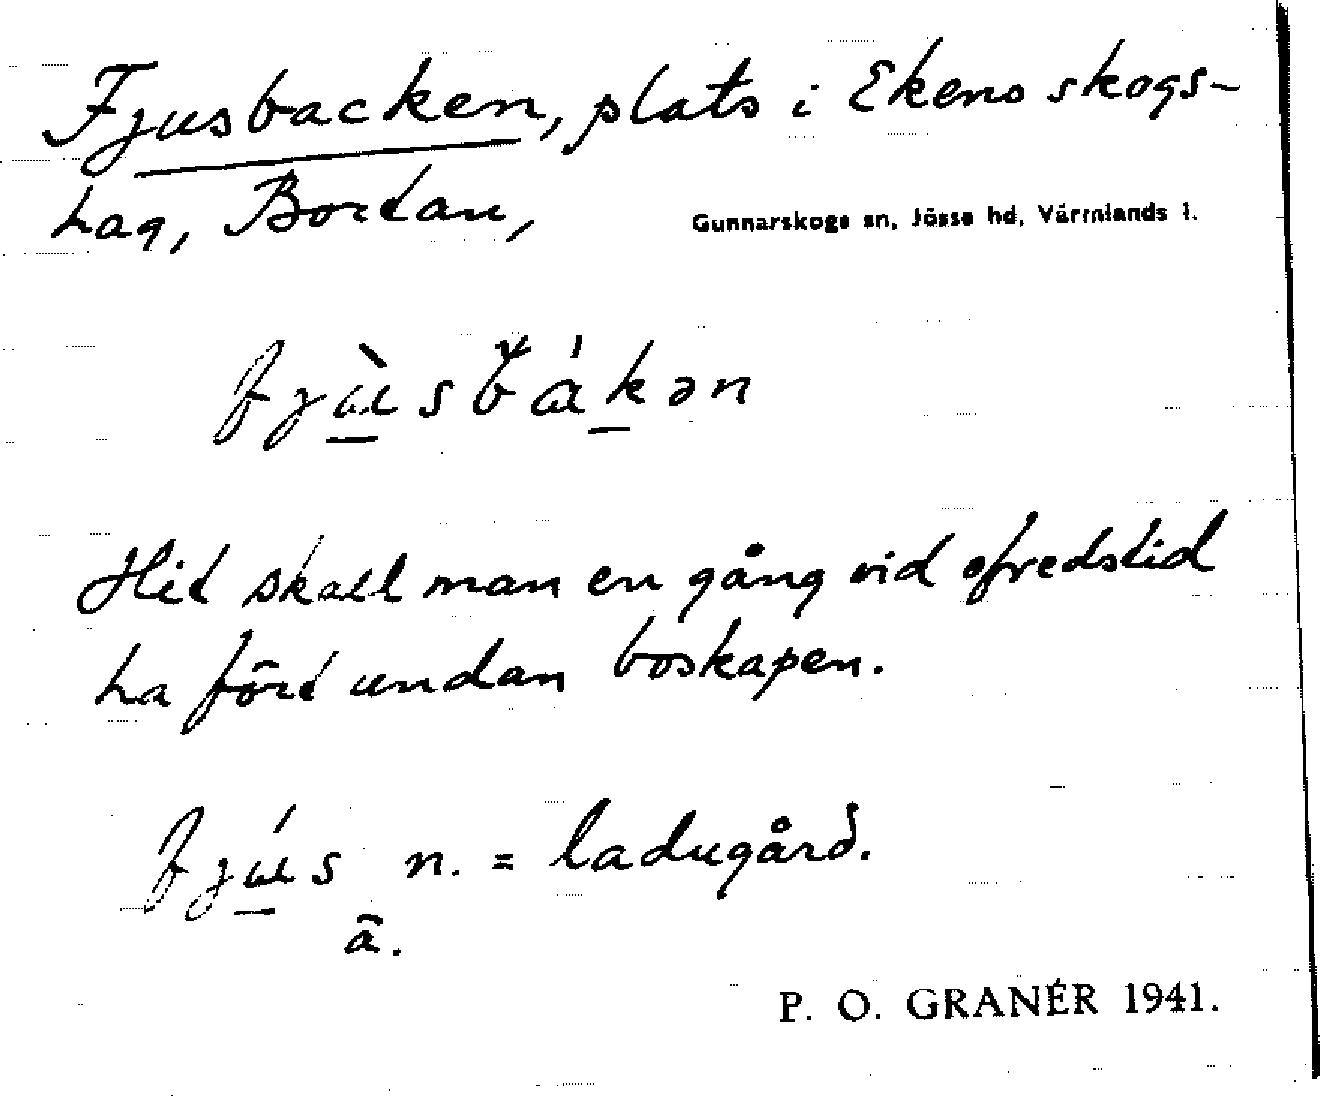 Fjusbacken, plats i Ekens skogs-
hag, Bortan,
Gunnarskogs sn, Jösse hd, Värmlands l.
fjùsbákən
Hit skall man en gång vid ofredstid
ha fört undan boskapen.
fjús n. = ladugård.
ā.
P. O. GRANÉR 1941.